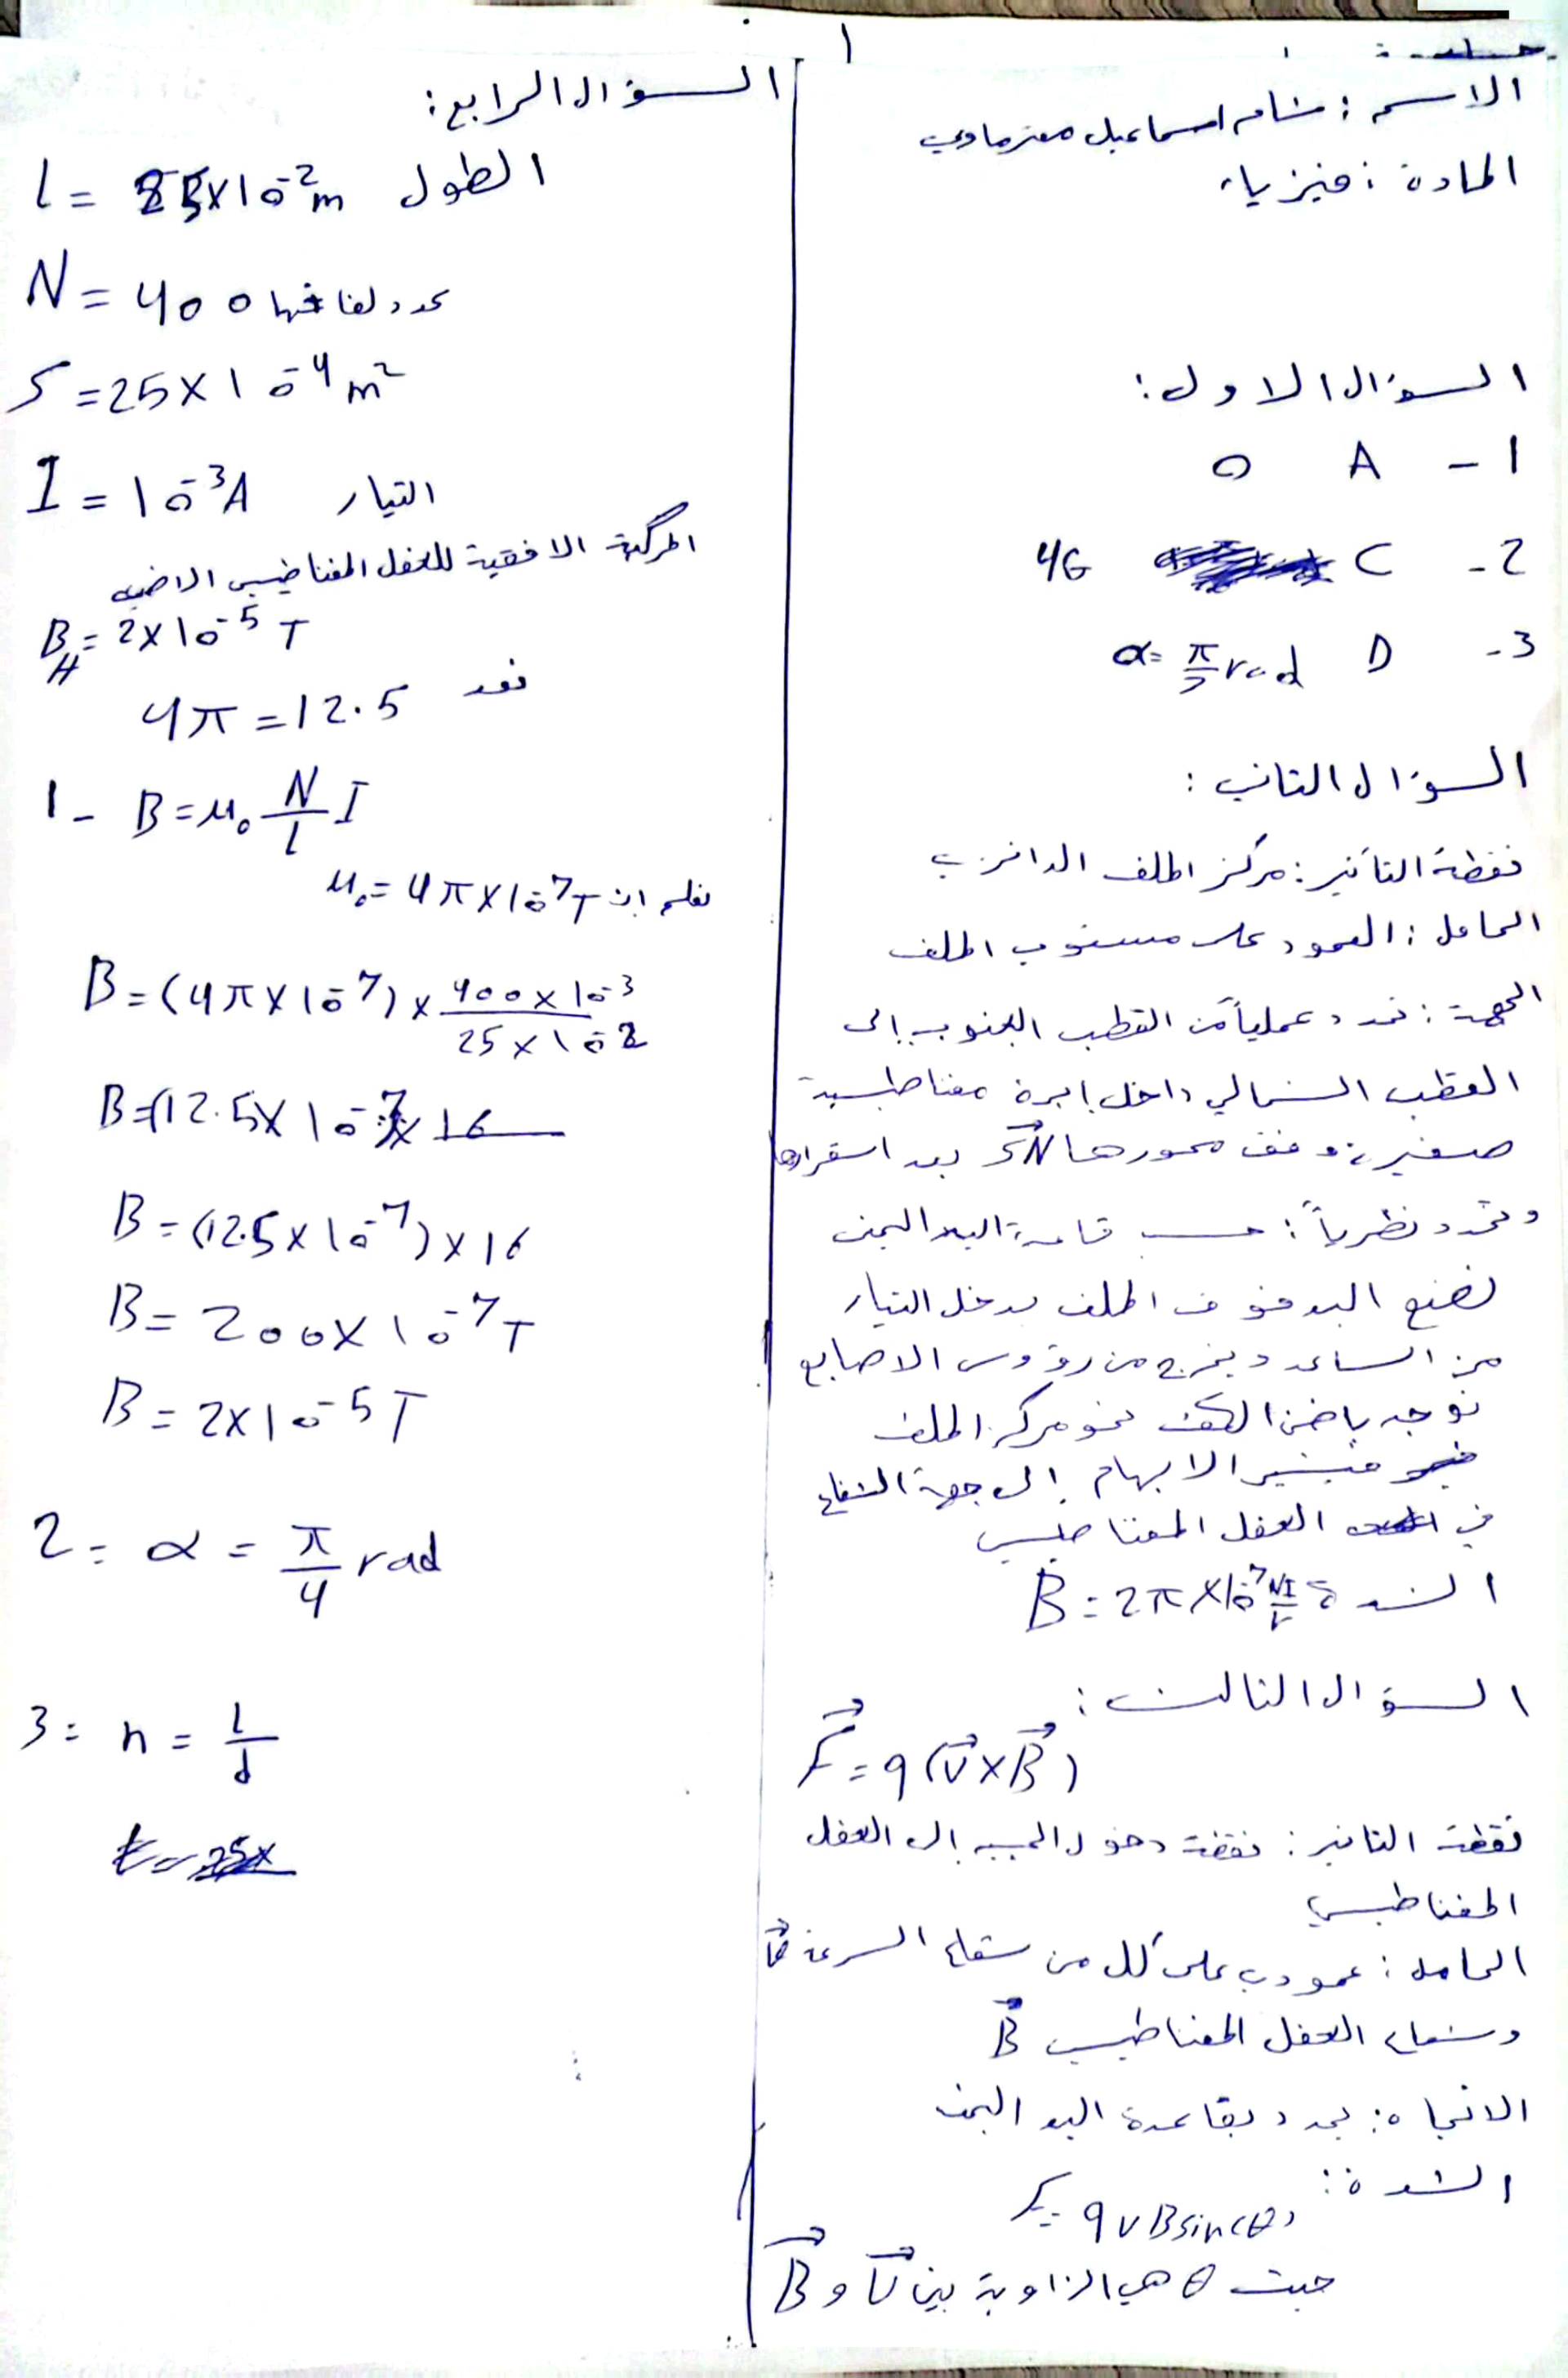 الاسم : هشام اسماعيل
المادة : فيزياء
السؤال الاول :
1 - A 0
2 - C 4G
3 - D α = π/2 rad
السؤال الثاني :
نقطة التأثير : مركز الملف الدائري
الحامل : العمود على مستوي الملف
الجهة : نحدد عملياً من القطب الجنوبي إلى
القطب الشمالي داخل إبرة مغناطيسية
صغيرة وفق محورها SN بعد استقرارها
وتحدد نظرياً : حسب قاعدة اليد اليمنى
نضع اليد فوق الملف يدخل التيار
من الساعد ويخرج من رؤوس الاصابع
نوجه باطن الكف نحو مركز الملف
فيشير الابهام إلى جهة الشعاع
في الحقل المغناطيسي
الشدة B = 2π×10⁻⁷ NI/r
السؤال الثالث :
F = q (v × B)
نقطة التاثير : نقطة دخول الجسيم إلى الحقل
المغناطيسي
الحامل : عمودي على كل من شعاع السرعة v
وشعاع الحقل المغناطيسي B
الاتجاه : يحدد بقاعدة اليد اليمنى
الشدة :
F = qvBsin(θ)
حيث θ هي الزاوية بين v و B
السؤال الرابع :
الطول l = 25×10⁻² m
N = 400 عدد لفاتها
S = 25×10⁻⁴ m²
التيار I = 10⁻³ A
المركبة الافقية للحقل المغناطيسي الارضي
B_H = 2×10⁻⁵ T
نعد 4π = 12.5
1 - B = μ₀ N/l I
نعلم ان μ₀ = 4π×10⁻⁷ T
B = (4π×10⁻⁷) × 400×10⁻³ / 25×10⁻²
B = (12.5×10⁻⁷ × 16
B = (12.5×10⁻⁷) × 16
B = 200×10⁻⁷ T
B = 2×10⁻⁵ T
2 = α = π/4 rad
3 = n = l/d